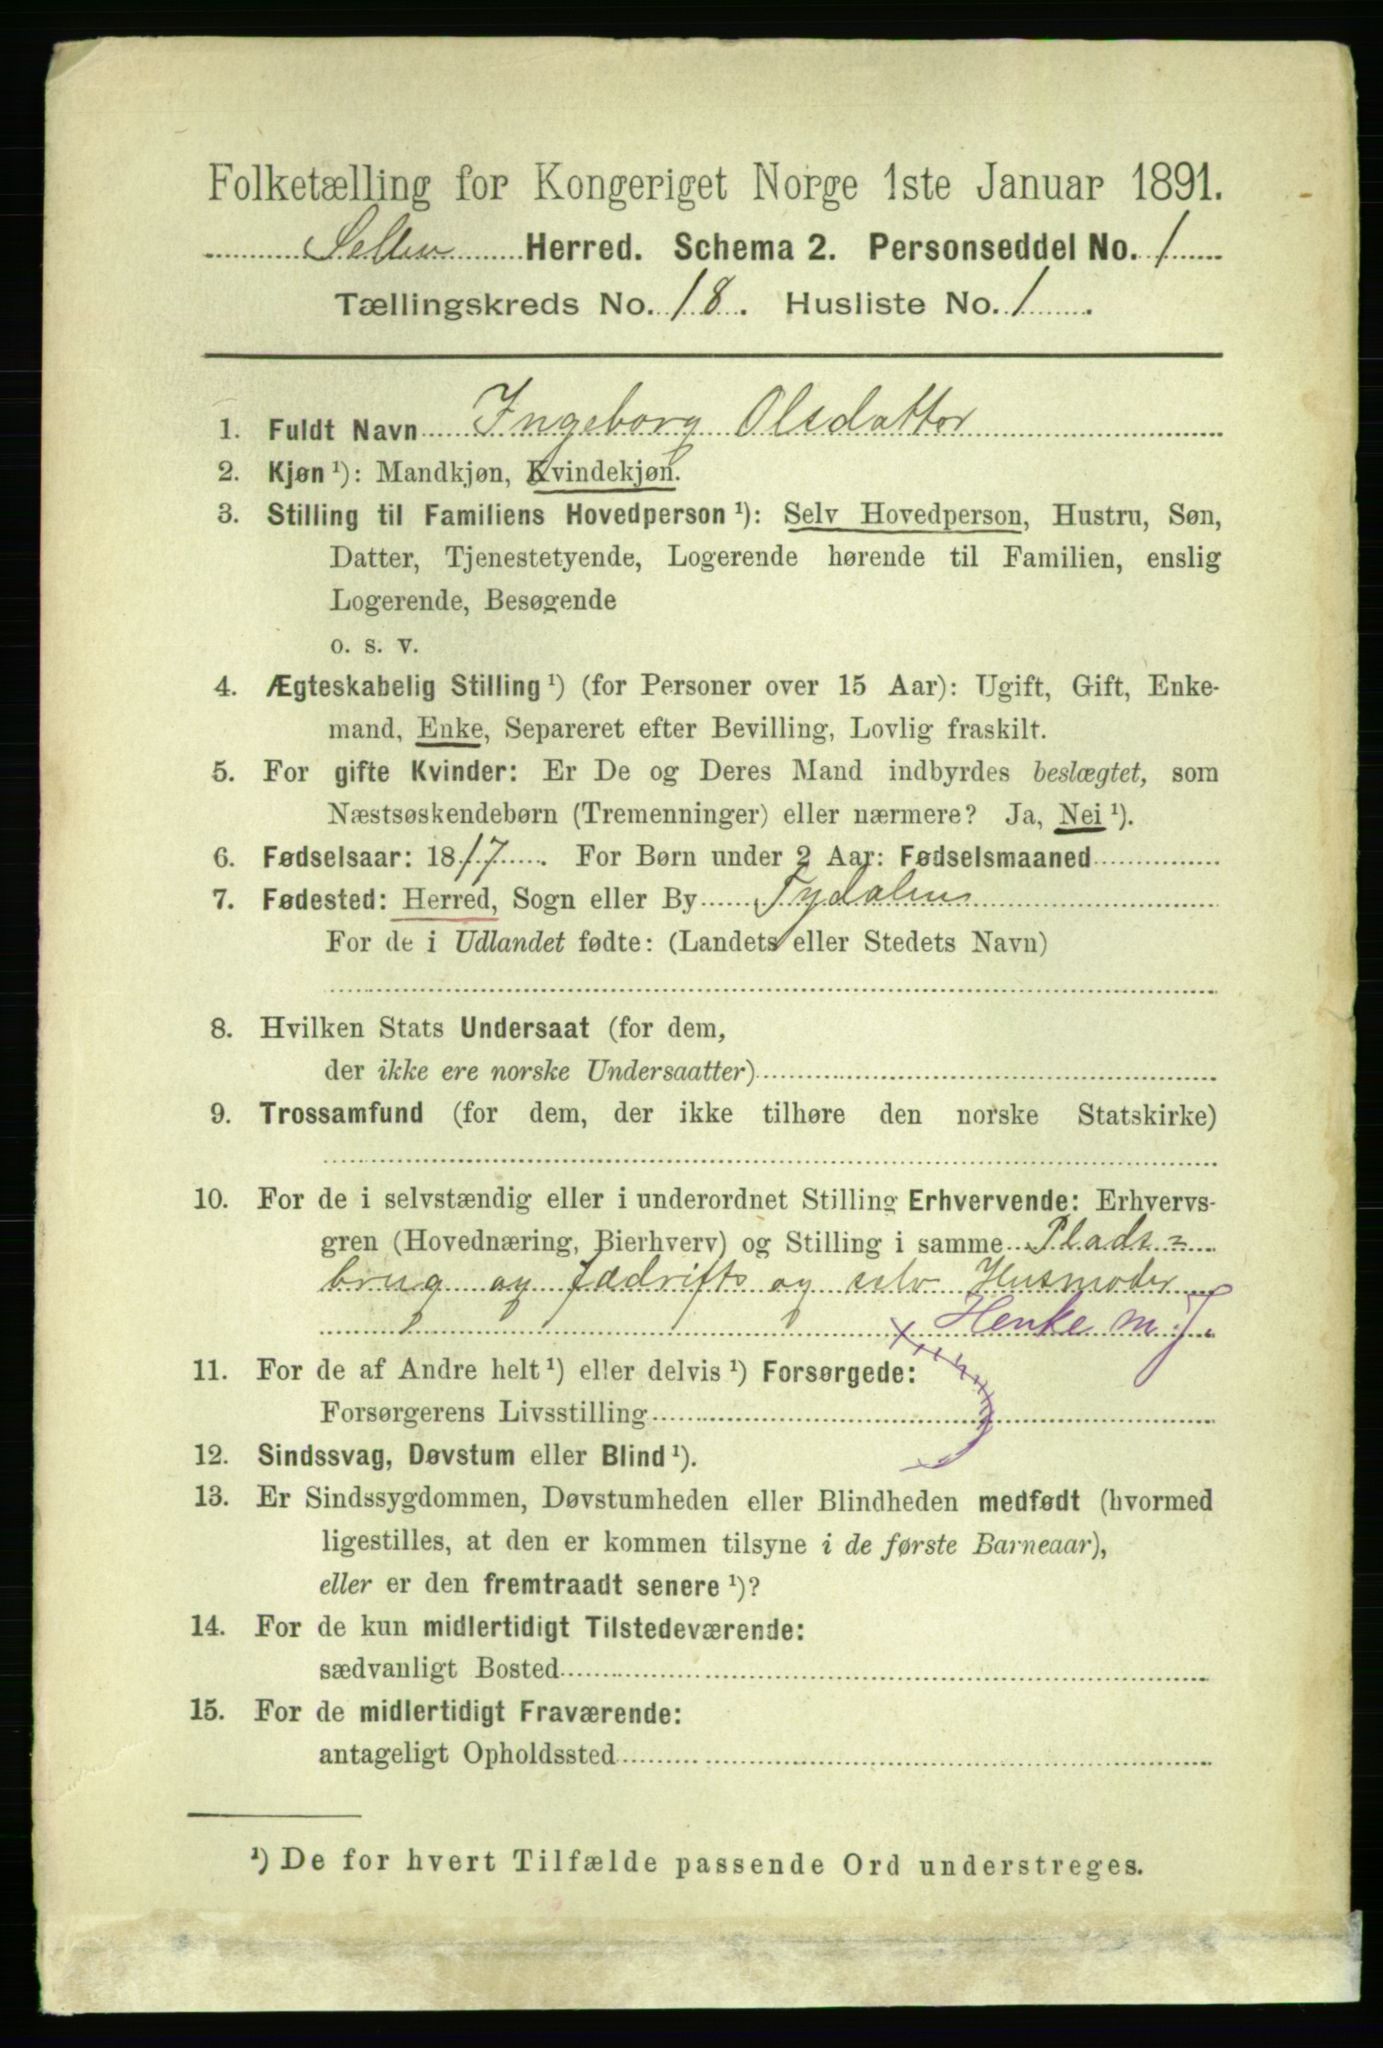 Folketælling for Kongeriget Norge 1ste Januar 1891.
Selbu Herred. Schema 2. Personseddel No. 1
Tællingskreds No. 18. Husliste No. 1.
1. Fuldt Navn Ingeborg Olsdatter
2. Kjøn ¹): Mandkjøn, Kvindekjøn.
3. Stilling til Familiens Hovedperson ¹): Selv Hovedperson, Hustru, Søn,
Datter, Tjenestetyende, Logerende hørende til Familien, enslig
Logerende, Besøgende
o. s. v.
4. Ægteskabelig Stilling ¹) (for Personer over 15 Aar): Ugift, Gift, Enke-
mand, Enke, Separeret efter Bevilling, Lovlig fraskilt.
5. For gifte Kvinder: Er De og Deres Mand indbyrdes beslægtet, som
Næstsøskendebørn (Tremenninger) eller nærmere? Ja, Nei ¹).
6. Fødselsaar: 1817. For Børn under 2 Aar: Fødselsmaaned
7. Fødested: Herred, Sogn eller By Tydalen
For de i Udlandet fødte: (Landets eller Stedets Navn)
8. Hvilken Stats Undersaat (for dem,
der ikke ere norske Undersaatter)
9. Trossamfund (for dem, der ikke tilhøre den norske Statskirke)
10. For de i selvstændig eller i underordnet Stilling Erhvervende: Erhvervs-
gren (Hovednæring, Bierhverv) og Stilling i samme Plads=
brug og Fædrifts og selv Husmoder
m J.
11. For de af Andre helt ¹) eller delvis ¹) Forsørgede:
Forsørgerens Livsstilling
12. Sindssvag, Døvstum eller Blind ¹).
13. Er Sindssygdommen, Døvstumheden eller Blindheden medfødt (hvormed
ligestilles, at den er kommen tilsyne i de første Barneaar),
eller er den fremtraadt senere ¹)?
14. For de kun midlertidigt Tilstedeværende:
sædvanligt Bosted
15. For de midlertidigt Fraværende:
antageligt Opholdssted
¹) De for hvert Tilfælde passende Ord understreges.